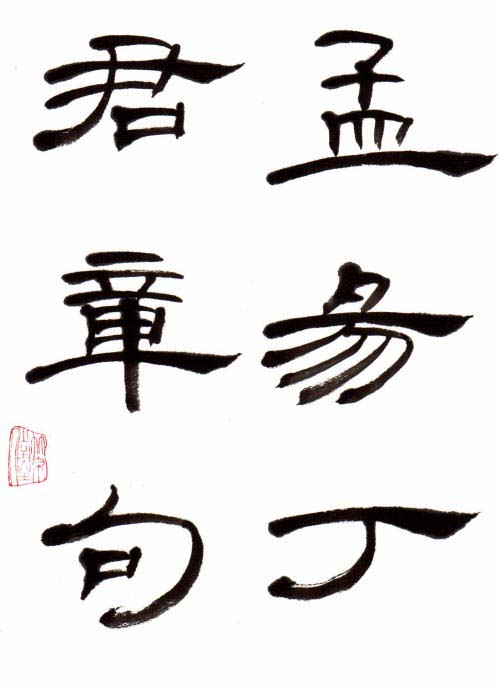 孟易丁
君章句